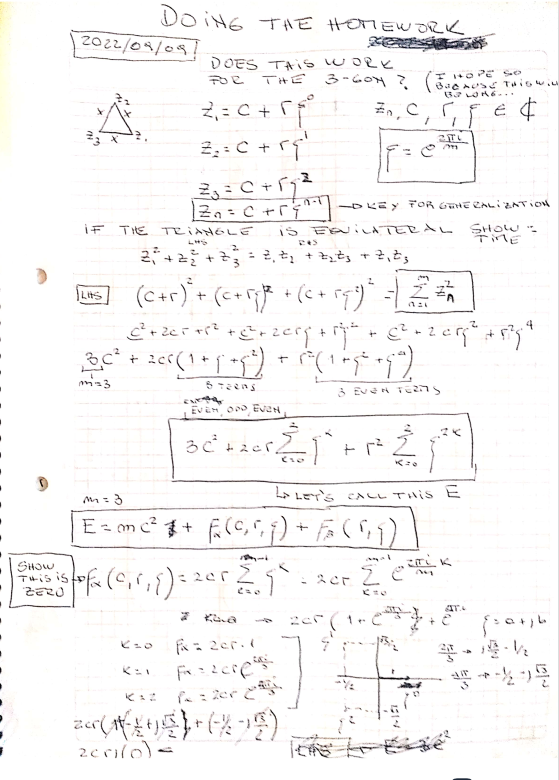 DOING THE HOMEWORK
2022/09/09
DOES THIS WORK
FOR THE 3-GON? (I HOPE SO
BECAUSE THIS WILL
BE LONG...
z₂
x x
z₃ x z₁
z₁ = c + rζ⁰
z₂ = c + rζ¹
z₃ = c + rζ²
zₙ = c + rζⁿ⁻¹ → KEY FOR GENERALIZATION
zₙ, c, r, ζ ∈ ℂ
ζ = e^(2πi/m)
IF THE TRIANGLE IS EQUILATERAL SHOW =
TIME
LHS RHS
z₁² + z₂² + z₃² = z₁z₂ + z₂z₃ + z₁z₃
LHS (c+r)² + (c+rζ)² + (c+rζ²)² = Σ_{n=1}^{m} zₙ²
c² + 2cr + r² + c² + 2crζ + r²ζ² + c² + 2crζ² + r²ζ⁴
3c² + 2cr(1 + ζ + ζ²) + r²(1 + ζ² + ζ⁴)
m=3 3 TERMS 3 EVEN TERMS
EVEN, ODD, EVEN
3c² + 2cr Σ_{k=0}^{2} ζ^k + r² Σ_{k=0}^{2} ζ^{2k}
↳ LET'S CALL THIS E
m=3
E = mc² + F_α(c,r,ζ) + F_β(r,ζ)
SHOW
THIS IS
ZERO
→ F_α(c,r,ζ) = 2cr Σ_{k=0}^{m-1} ζ^k = 2cr Σ_{k=0}^{m-1} e^{(2πi/m)k}
k=0 F_α = 2cr·1
k=1 F_α = 2cr e^{2πi/3}
k=2 F_α = 2cr e^{4πi/3}
ζ = a + jb
2π/3 → j√3/2 - 1/2
4π/3 → -1/2 - j√3/2
ζ¹ √3/2
-1/2
ζ² -√3/2
2cr(1 + (-1/2 + j√3/2) + (-1/2 - j√3/2)
2cr(0) =